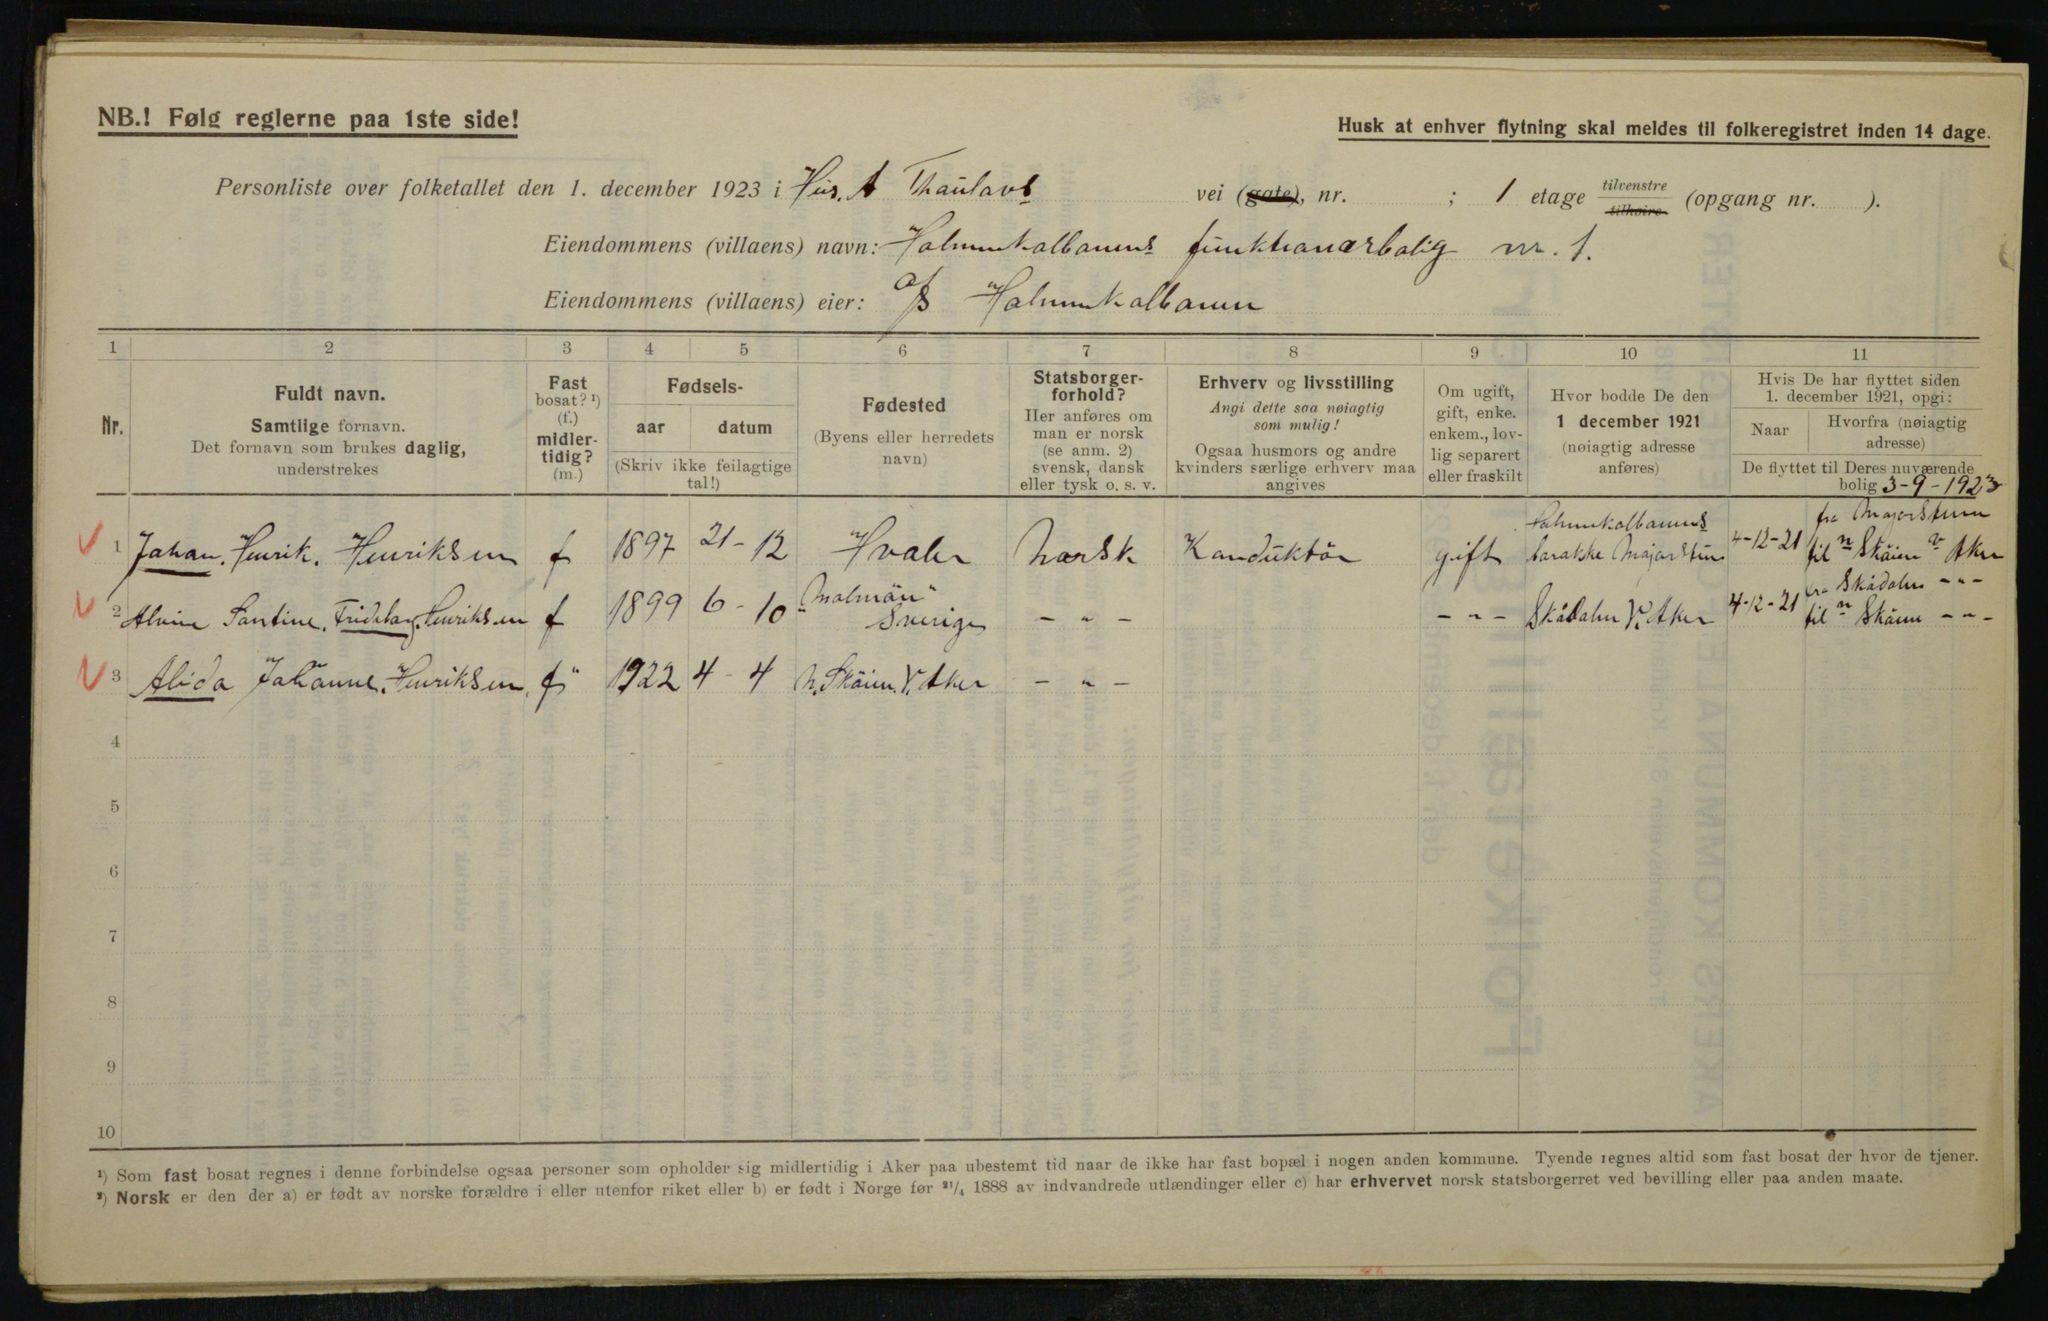 NB.! Følg reglerne paa 1ste side!
Husk at enhver flytning skal meldes til folkeregistret inden 14 dage.
Personliste over folketallet den 1. december 1923 i Hus. A Thaulavs vei (gate), nr. ; 1 etage tilvenstre tilhøire (opgang nr. ).
Eiendommens (villaens) navn: Holmenkolbanens funktionærbolig nr. 1.
Eiendommens (villaens) eier: A/S Holmenkolbanen
1 2 3 4 5 6 7 8 9 10 11
Nr.
Fuldt navn.
Samtlige fornavn.
Det fornavn som brukes daglig,
understrekes
Fast
bosat? ¹)
(f.)
midler-
tidig?
(m.)
Fødsels-
aar datum
(Skriv ikke feilagtige
tal!)
Fødested
(Byens eller herredets
navn)
Statsborger-
forhold?
Her anføres om
man er norsk
(se anm. 2)
svensk, dansk
eller tysk o. s. v.
Erhverv og livsstilling
Angi dette saa nøiagtig
som mulig!
Ogsaa husmors og andre
kvinders særlige erhverv maa
angives
Om ugift,
gift, enke.
enkem., lov-
lig separert
eller fraskilt
Hvor bodde De den
1 december 1921
(nøiagtig adresse
anføres)
Hvis De har flyttet siden
1. december 1921, opgi:
Naar
Hvorfra (nøiagtig
adresse)
De flyttet til Deres nuværende
bolig 3-9-1923
1 Johan. Henrik. Henriksen f 1897 21-12 Hvaler Norsk Konduktør gift Holmenkolbanens barakke Majorstuen 4-12-21 fra Majorstuen til n Skøien v Aker
2 Alvine Santine. Frideborg. Henriksen f 1899 6-10 "Malmön" Sverige - " - - " - Skådalen V. Aker 4-12-21 fra Skådalen - " - til n Skøien - " -
3 Alida Johanne. Henriksen. f" 1922 4-4 N. Skøien V. Aker - " -
4
5
6
7
8
9
10
¹) Som fast bosat regnes i denne forbindelse ogsaa personer som opholder sig midlertidig i Aker paa ubestemt tid naar de ikke har fast bopæl i nogen anden kommune. Tyende regnes altid som fast bosat der hvor de tjener.
²) Norsk er den der a) er født av norske forældre i eller utenfor riket eller b) er født i Norge før ²¹/₄ 1888 av indvandrede utlændinger eller c) har erhvervet norsk statsborgerret ved bevilling eller paa anden maate.